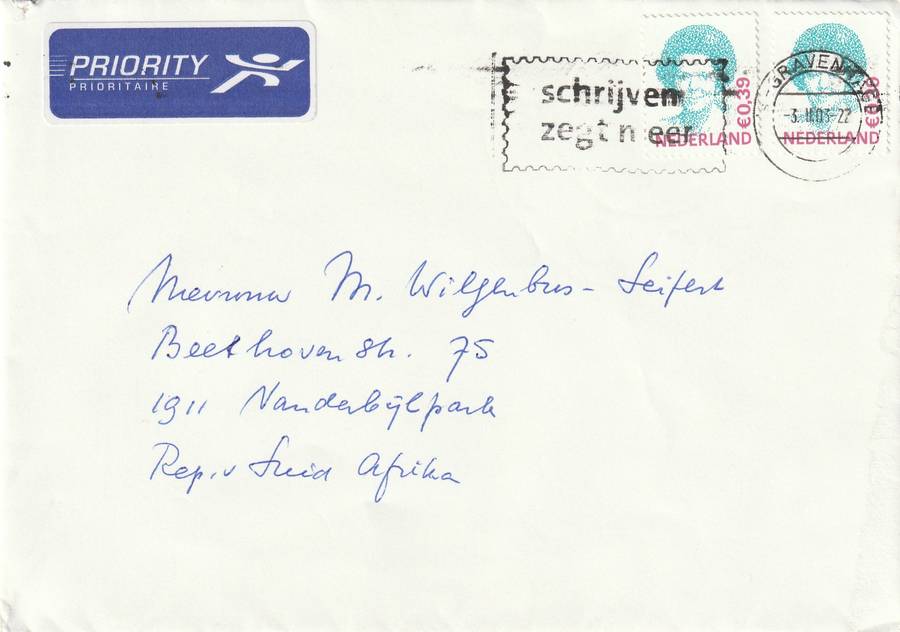 PRIORITY
PRIORITAIRE
schrijven
zegt meer
€0,39
NEDERLAND
€0,39
NEDERLAND
'S-GRAVENHAGE
-3.II.03-22
Mevrouw M. Wilgenbus-Seifert
Beethovenstr. 75
1911 Vanderbijlpark
Rep. v Suid Afrika